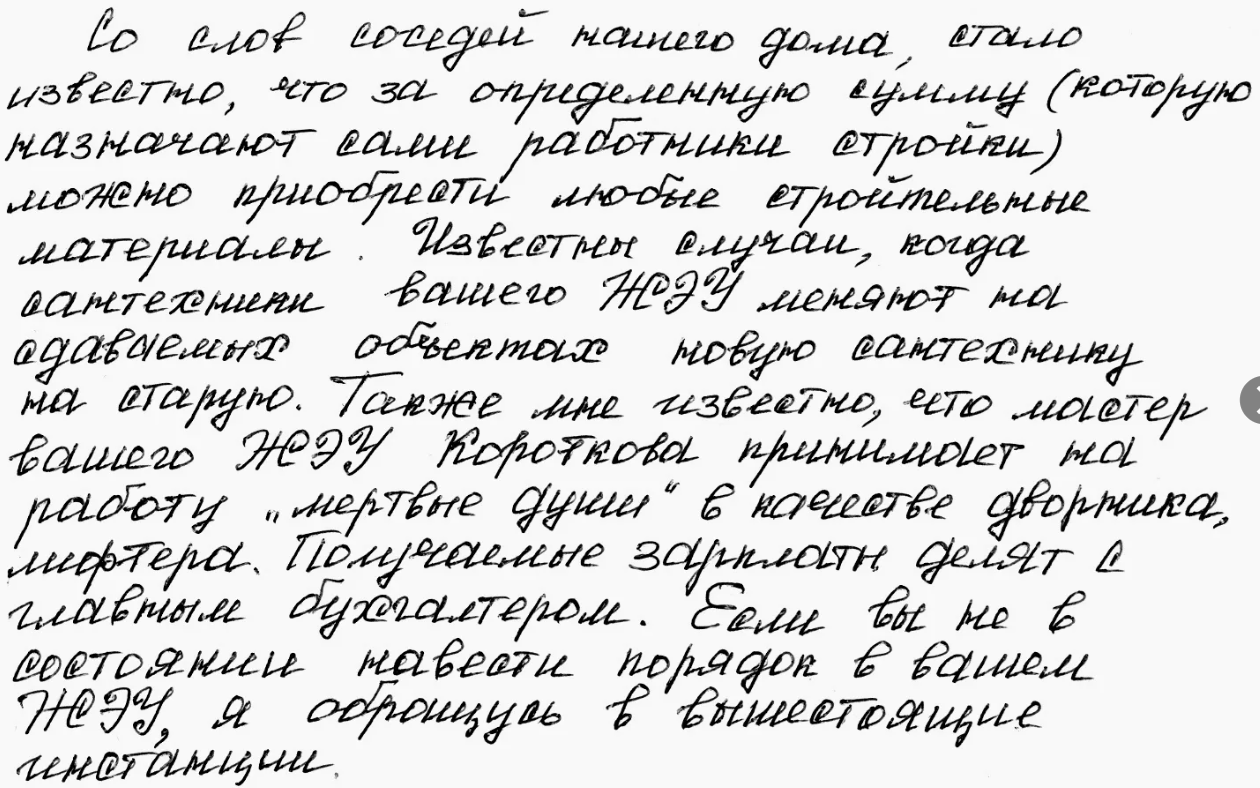 Со слов соседей нашего дома, стало
известно, что за определенную сумму (которую
назначают сами работники стройки)
можно приобрести любые стройтельные
материалы. Известны случаи, когда
сантехники вашего ЖЭУ меняют на
сдаваемых объектах новую сантехнику
на старую. Также мне известно, что мастер
вашего ЖЭУ Короткова принимает на
работу „мертвые души“ в качестве дворника,
лифтера. Получаемые зарплаты делят с
главным бухгалтером. Если вы не в
состоянии навести порядок в вашем
ЖЭУ, я обращусь в вышестоящие
инстанции.